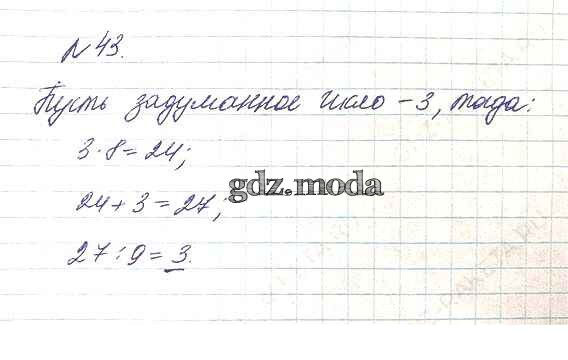 № 43.
Пусть задуманное число – 3, тогда:
3·8=24;
gdz.moda
24+3=27;
27:9=3.